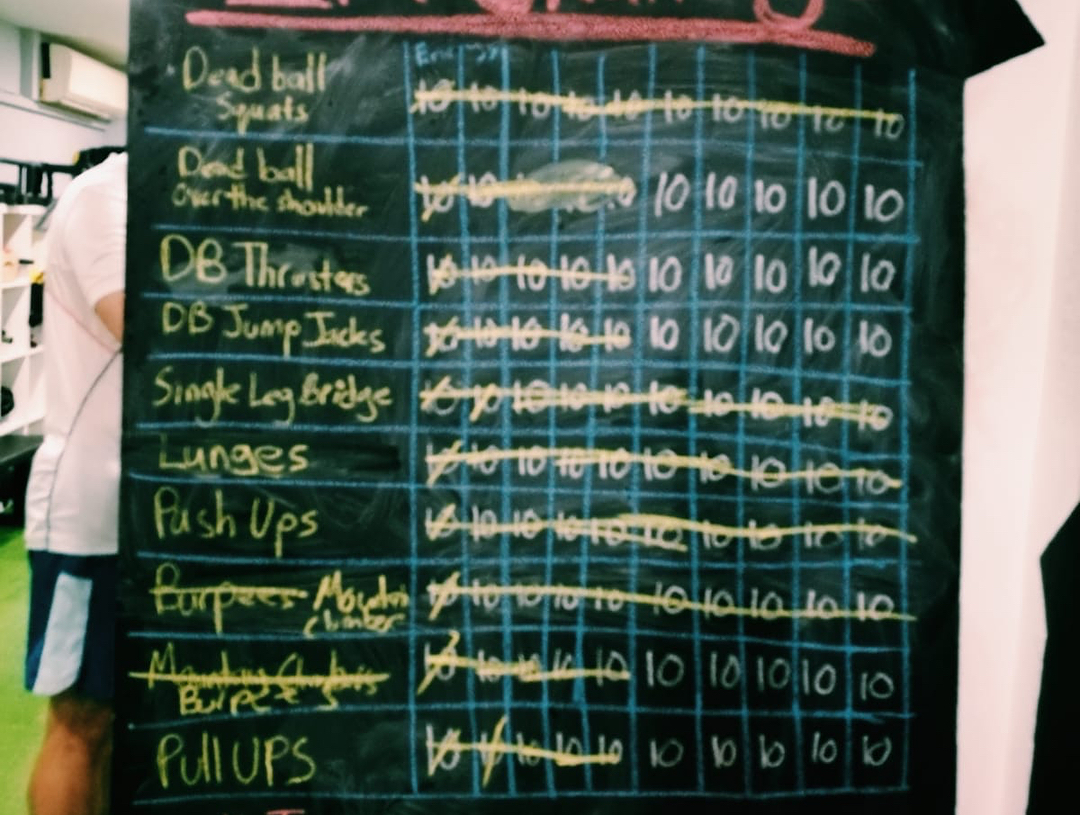 Dead ball
Squats
10 10 10 10 10 10 10 10 10 10
Dead ball
Over the shoulder
10 10 10 10 10 10 10 10
DB Thrusters
10 10 10 10 10 10 10 10 10 10
DB Jump Jacks
10 10 10 10 10 10 10 10 10 10
Single Leg Bridge
10 10 10 10 10 10 10 10 10 10
Lunges
10 10 10 10 10 10 10 10 10 10
Push Ups
10 10 10 10 10 10 10 10 10 10
Burpees Mountain
Climber
10 10 10 10 10 10 10 10 10 10
Mountain Climbers
Burpees
10 10 10 10 10 10 10 10 10 10
Pull UPS
10 10 10 10 10 10 10 10 10 10